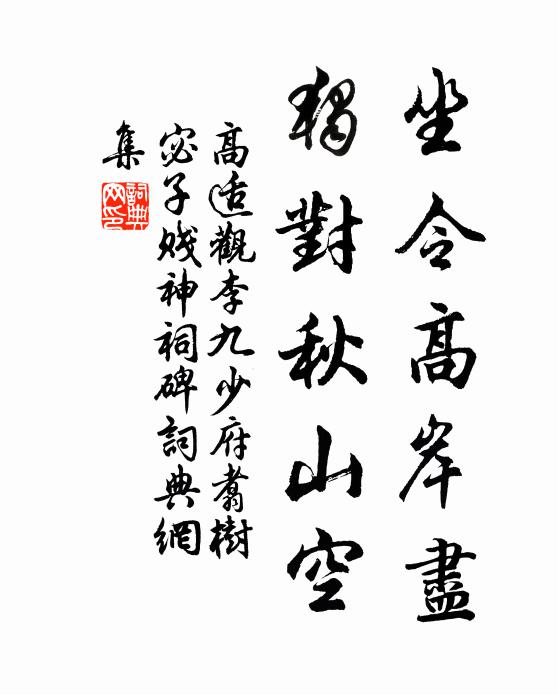 坐令高岸盡
獨對秋山空
高适觀李九少府翥樹
宓子賤神祠碑詞典網
集
詞典
网印